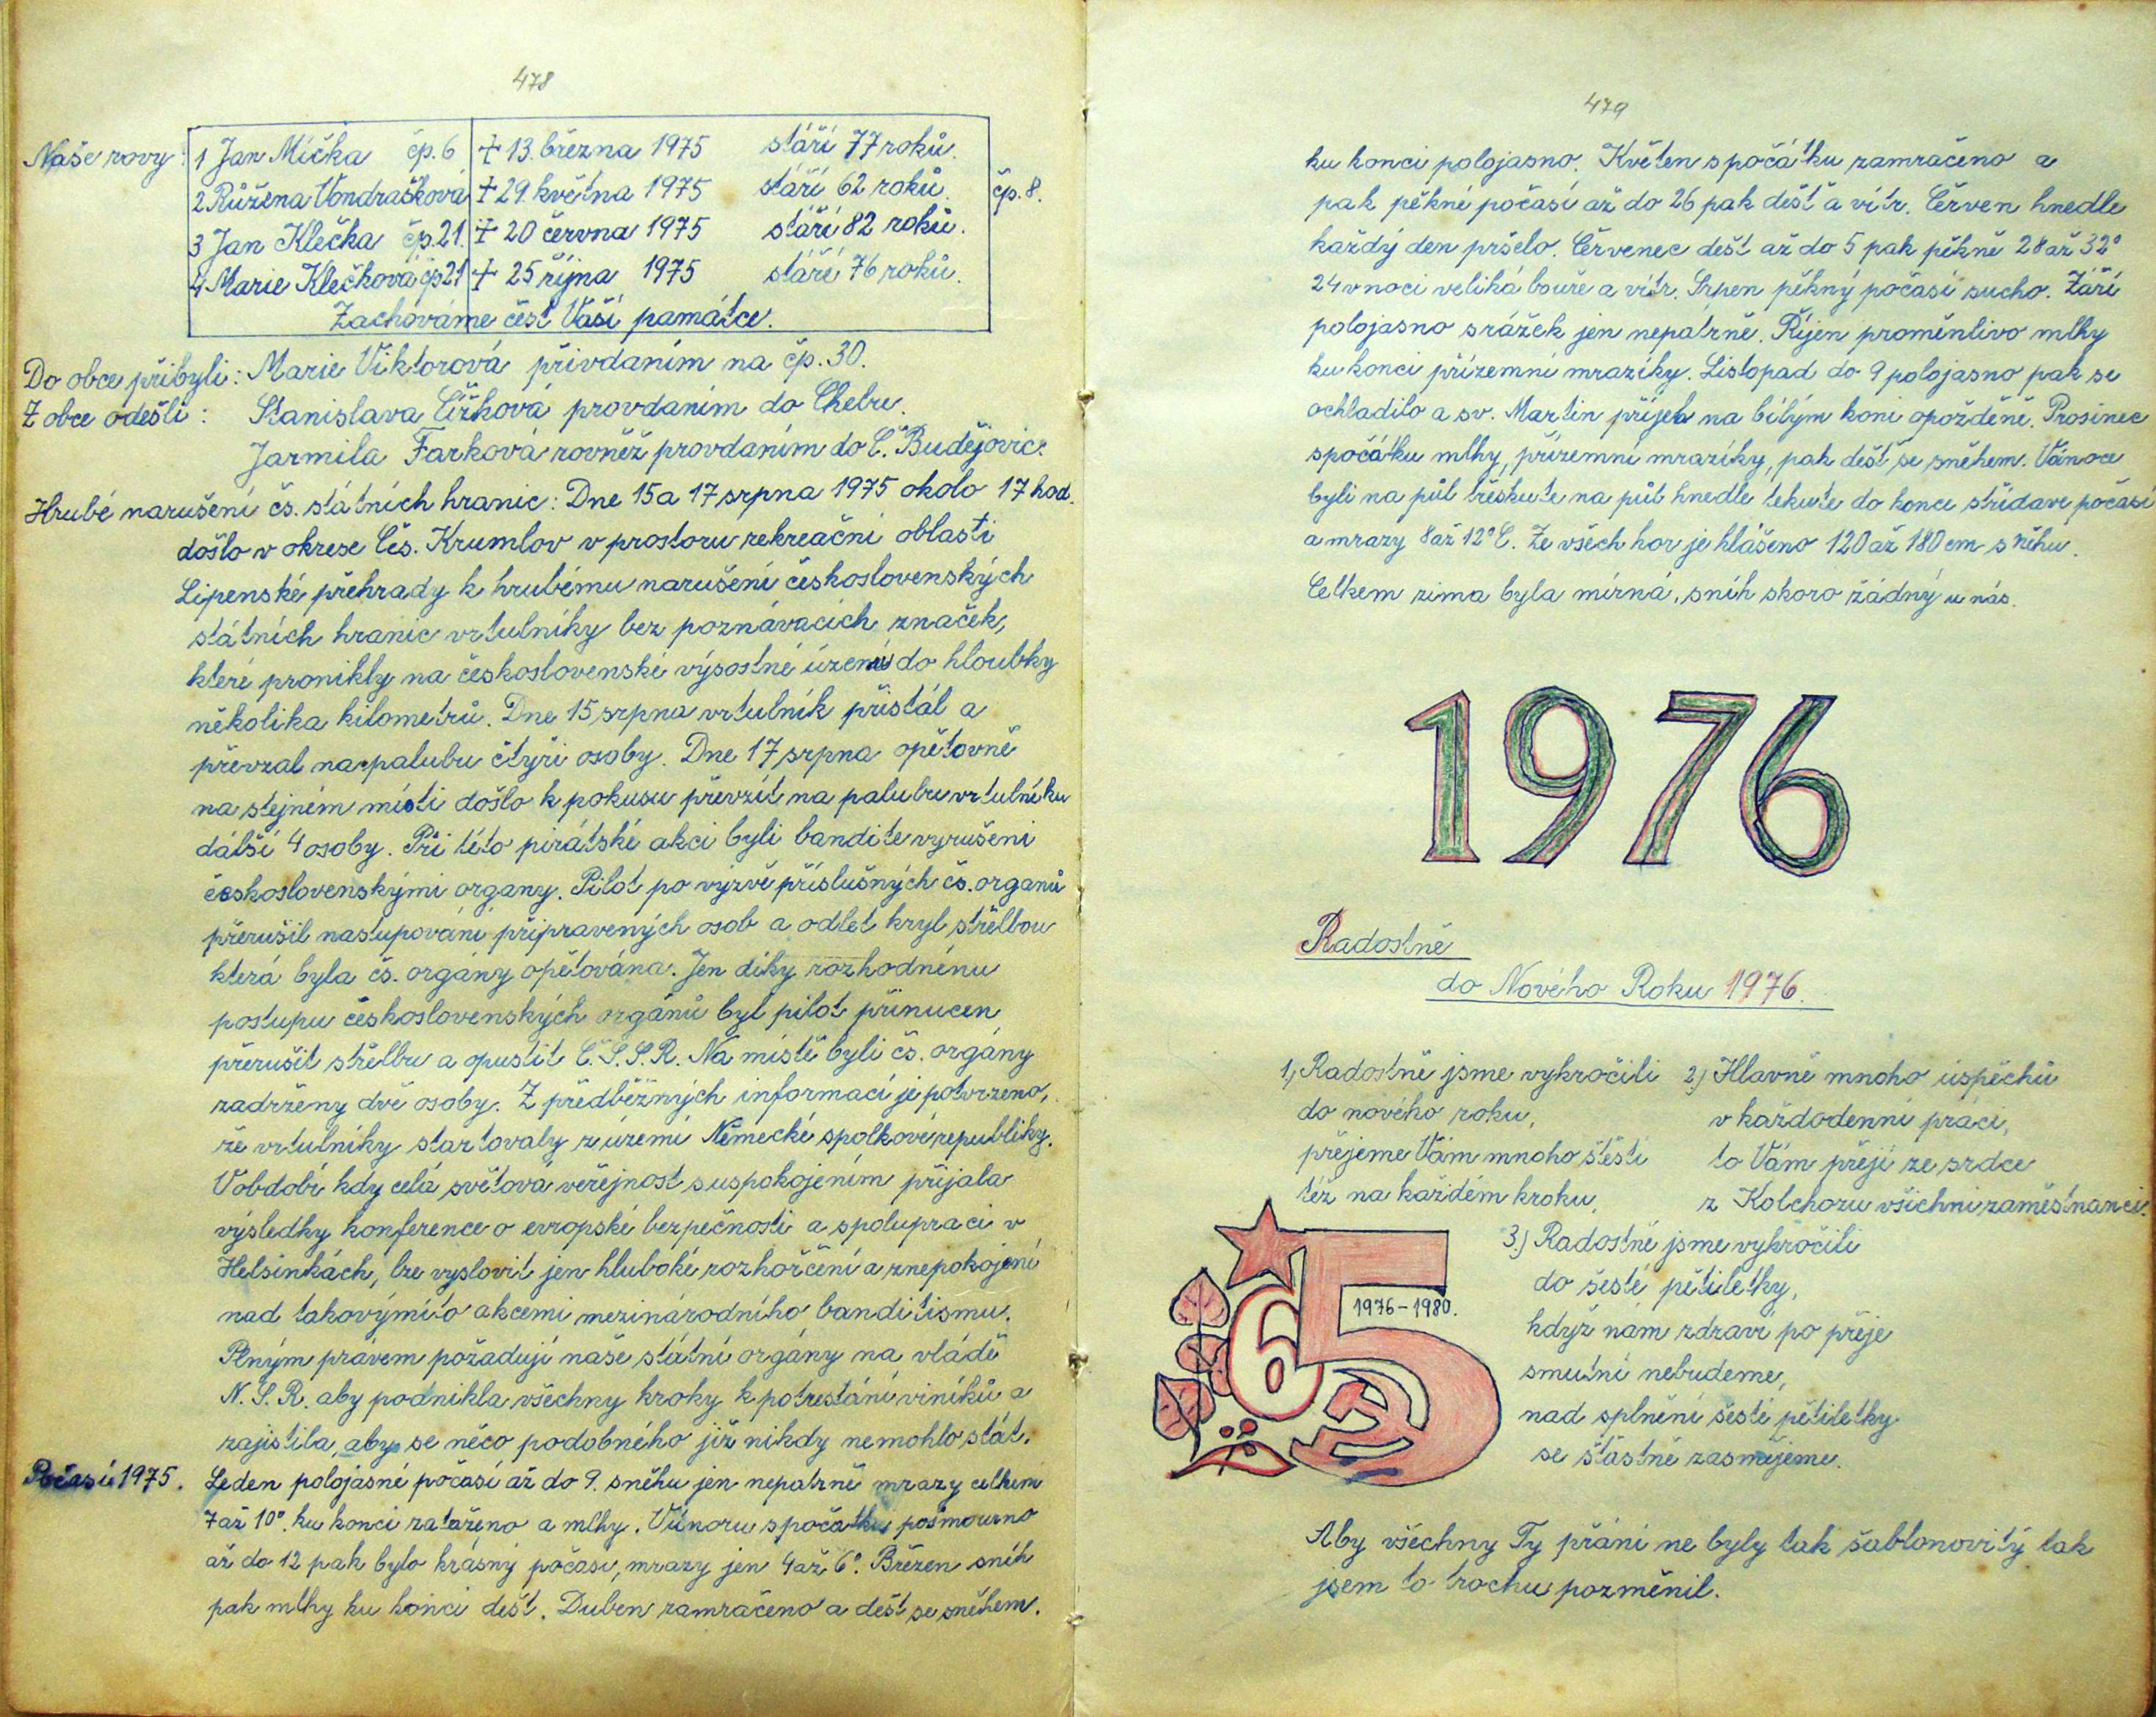 478
Naše rovy:
1 Jan Mička čp. 6 + 13. března 1975 stáří 77 roků.
2 Růžena Vondrašková + 29. května 1975 stáří 62 roků. čp. 8.
3 Jan Klečka čp. 21. + 20 června 1975 stáří 82 roků.
4 Marie Klečková čp 21 + 25 října 1975 stáří 76 roků.
Zachováme čest Vaší památce.
Do obce přibyli: Marie Viktorová přivdaním na čp. 30.
Z obce odešli: Stanislava Čížková provdaním do Chebu.
Jarmila Farková rovněž provdaním do Č. Budějovic.
Hrubé narušení čs. státních hranic: Dne 15 a 17 srpna 1975 okolo 17 hod.
došlo v okrese Čes. Krumlov v prostoru rekreační oblasti
Lipenské přehrady k hrubému narušení československých
státních hranic vrtulníky bez poznávacích značek,
které pronikly na československé výsostné území do hloubky
několika kilometrů. Dne 15 srpna vrtulník přistál a
převzal na palubu čtyři osoby. Dne 17 srpna opětovně
na stejném místi došlo k pokusu převzít na palubu vrtulníku
dálší 4 osoby. Při této pirátské akci byli bandite vyrušeni
československými organy. Pilot po výzvě příslušných čs. organů
přerušil nastupování připravených osob a odlet kryl střelbou
která byla čs. orgány opětována. Jen díky rozhodnénu
postupu československých orgánů byl pilot přinucen
přerušit střelbu a opustit Č.S.S.R. Na místě byli čs. orgány
zadrženy dvě osoby. Z předběžných informací je potvrzeno,
že vrtulníky startovaly z území Německé spolkové republiky.
V období kdy celá světová veřejnost s uspokojením přijala
výsledky konference o evropské bezpečnosti a spolupraci v
Helsinkách, lze vyslovit jen hluboké rozhořčení a znepokojení
nad takovýmito akcemi mezinárodního banditismu.
Plným právem požadují naše státní orgány na vládě
N.S.R. aby podnikla všechny kroky k potrestání viníků a
zajistila, aby se něco podobného již nikdy nemohlo stát.
Počasí 1975. Leden polojasné počasí až do 9. sněhu jen nepatrně mrazy celkem
7 až 10°. ku konci zataženo a mlhy. V únoru spočátku pošmourno
až do 12 pak bylo krásný počasí, mrazy jen 4 až 6°. Březen sníh
pak mlhy ku konci dešt. Duben zamračeno a dešt se sněhem.
479
ku konci polojasno. Květen spočátku zamračeno a
pak pěkné počasí až do 26 pak dešt a vítr. Červen hnedle
každý den pršelo. Červenec dešt až do 5 pak pěkně 28 až 32°
24 v noci veliká bouře a vítr. Srpen pěkný počasí sucho. Září
polojasno srážek jen nepatrně. Říjen proměnlivo mlhy
ku konci přízemní mrazíky. Listopad do 9 polojasno pak se
ochladilo a sv. Martin přijel na bílým koni opožděně. Prosinec
spočátku mlhy, přízemní mrazíky, pak dešt se sněhem. Vánoce
byli na půl třeskute na půl hnedle tekute do konce střídavé počasí
a mrazy 8 až 12°C. Ze všech hor je hlášeno 120 až 180 cm sněhu.
Celkem zima byla mírná, sníh skoro žádný u nás.
1976
Radostně
do Nového Roku 1976.
1.) Radostně jsme vykročili
do nového roku,
přejeme Vám mnoho štěstí
též na každém kroku.
2.) Hlavně mnoho úspěchů
v každodenní práci,
to Vám přejí ze srdce
z Kolchozu všichni zaměstnanci.
3.) Radostně jsme vykročili
do šesté pětiletky,
když nám zdraví po přeje
smutní nebudeme,
nad splnění šesté pětiletky
se štastně zasmějeme.
6 5
1976-1980.
Aby všechny Ty přání ne byly tak šablonovitý tak
jsem to trochu pozměnil.